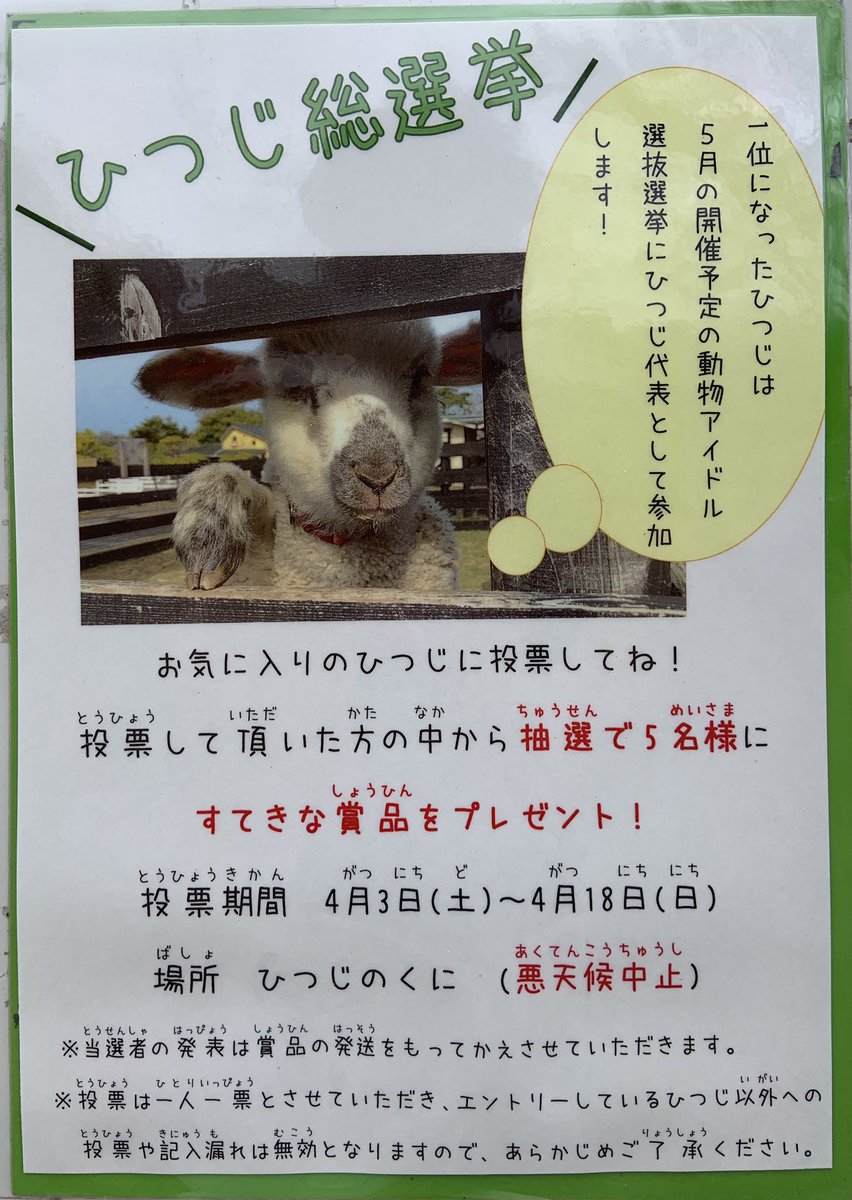 ひつじ総選挙
一位になったひつじは
5月の開催予定の動物アイドル
選抜選挙にひつじ代表として参加
します！
お気に入りのひつじに投票してね！
とうひょう いただ かた なか ちゅうせん めいさま
投票して頂いた方の中から抽選で5名様に
しょうひん
すてきな賞品をプレゼント！
とうひょうきかん がつ にち ど がつ にち にち
投票期間 4月3日(土)～4月18日(日)
ばしょ あくてんこうちゅうし
場所 ひつじのくに (悪天候中止)
とうせんしゃ はっぴょう しょうひん はっそう
※当選者の発表は賞品の発送をもってかえさせていただきます。
とうひょう ひとりいっぴょう いがい
※投票は一人一票とさせていただき、エントリーしているひつじ以外への
とうひょう きにゅうも むこう りょうしょう
投票や記入漏れは無効となりますので、あらかじめご了承ください。